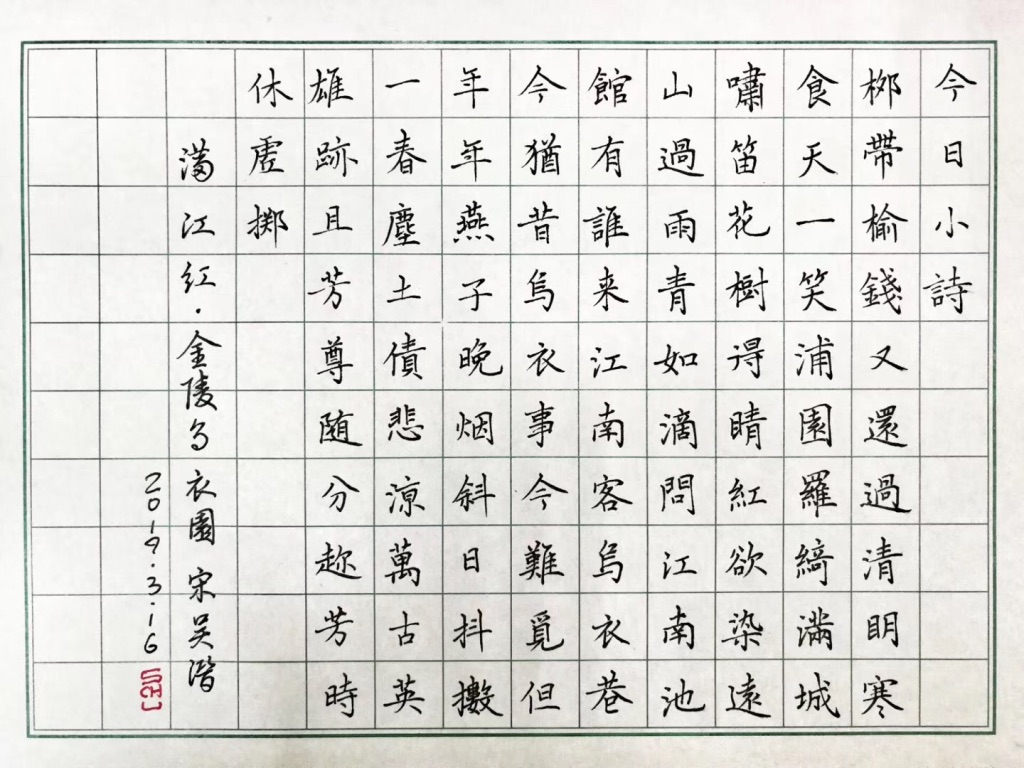 今日小詩
栁帶榆錢又還過清明寒
食天一笑浦園羅綺滿城
嘯笛花樹得晴紅欲染遠
山過雨青如滴問江南池
館有誰来江南客烏衣巷
今猶昔烏衣事今難覓但
年年燕子晚烟斜日抖擻
一春塵土債悲涼萬古英
雄跡且芳尊随分趂芳時
休虛擲
滿江红·金陵乌衣園 宋吴潛
2019.3.16